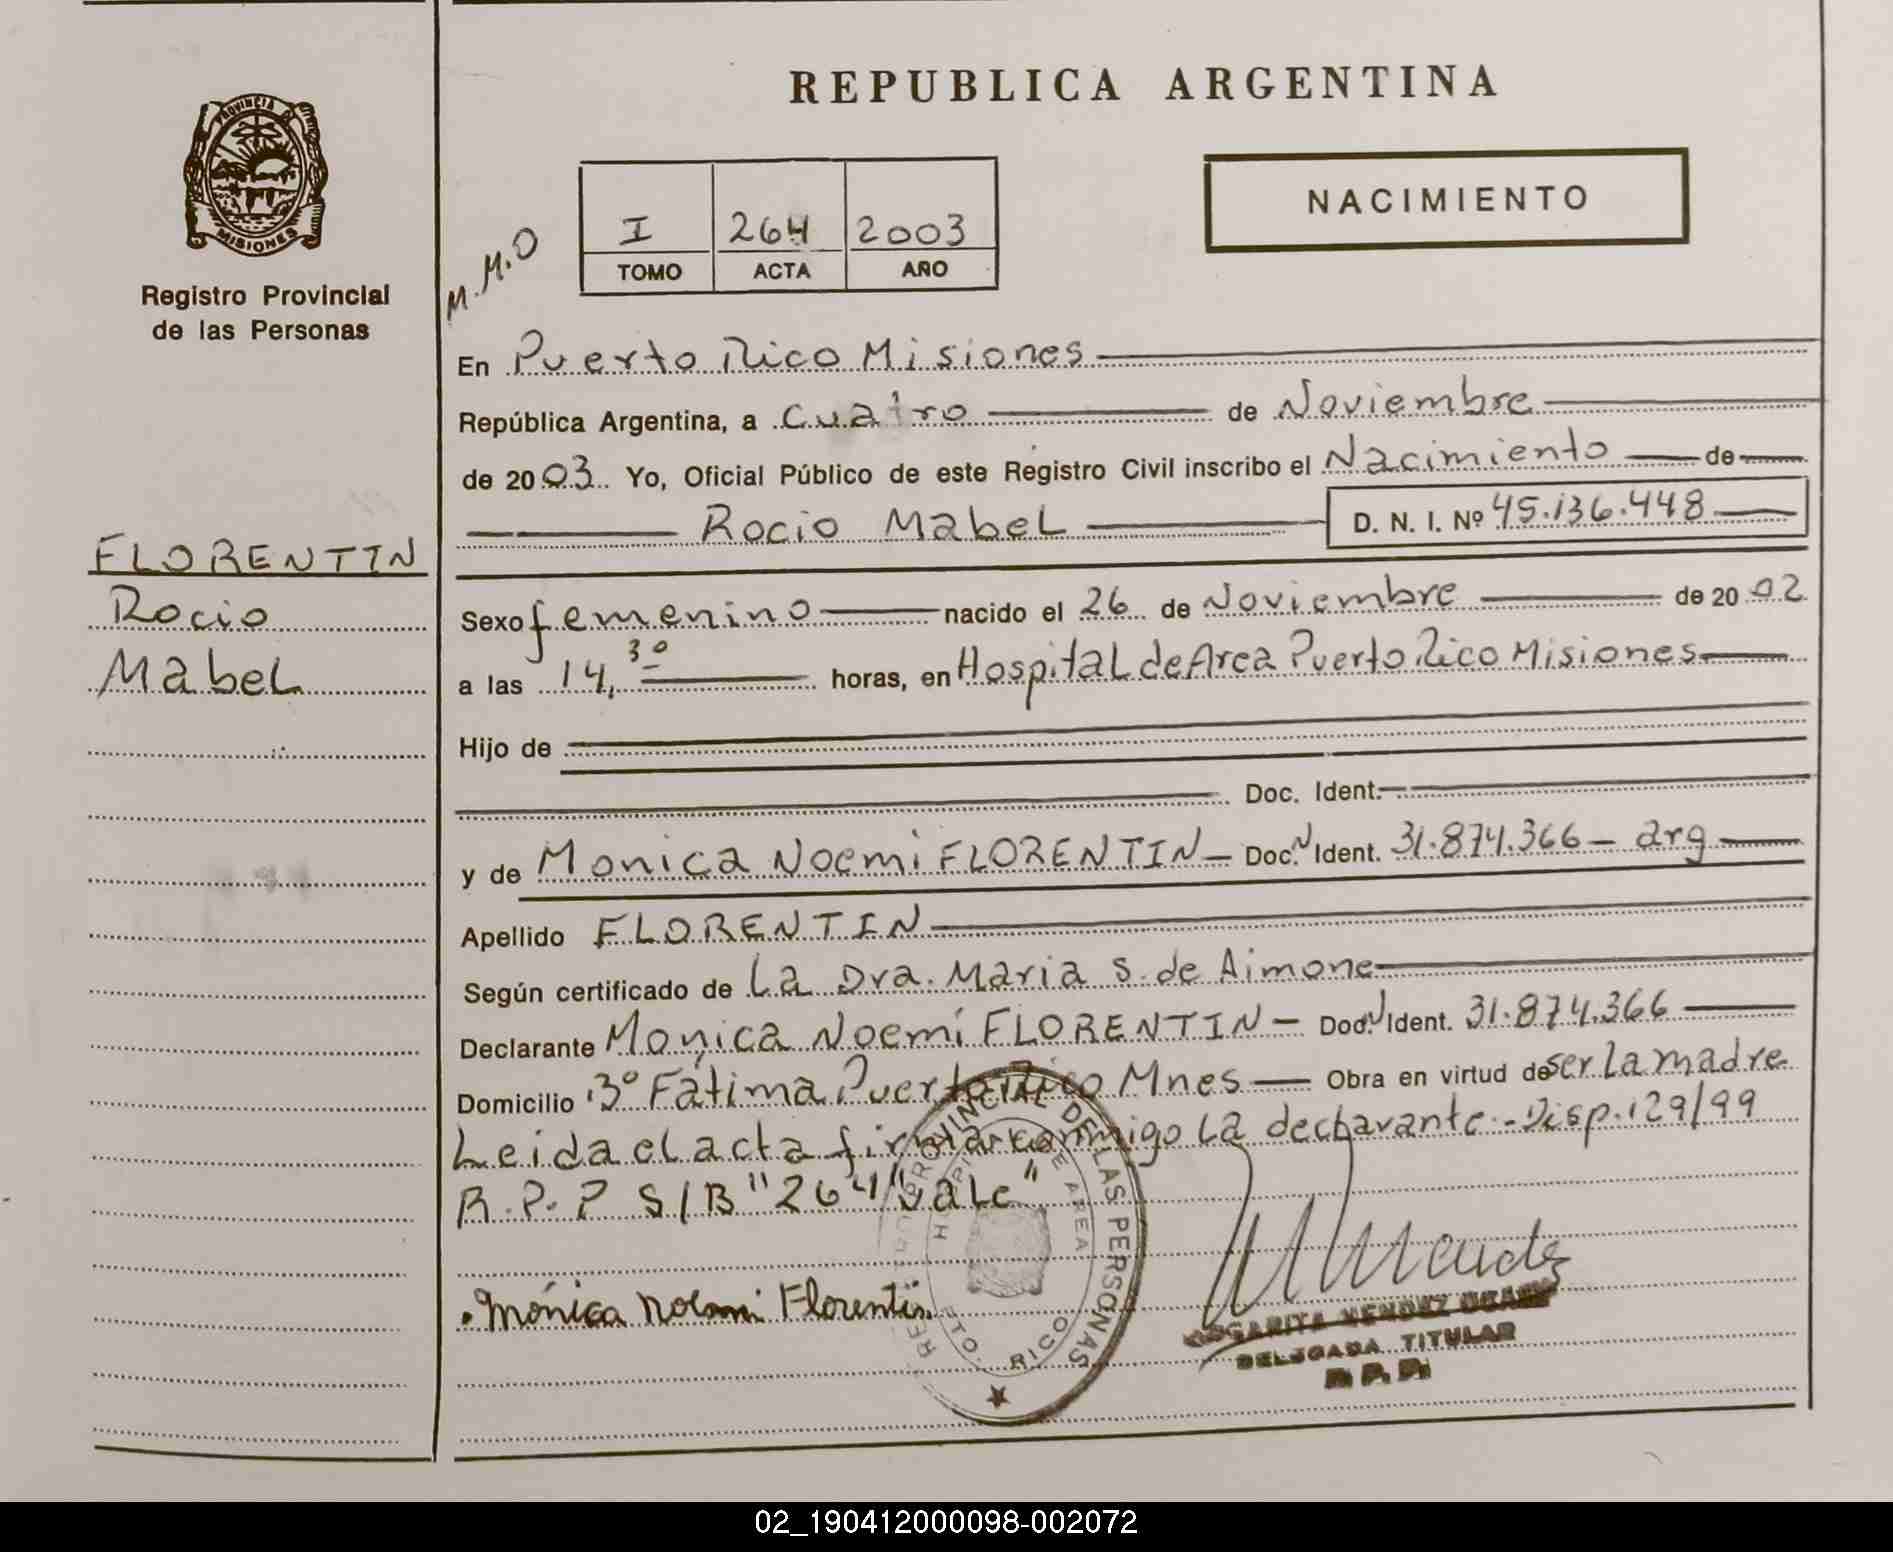 REPUBLICA ARGENTINA
PROVINCIA DE
MISIONES
Registro Provincial
de las Personas
I 264 2003
TOMO ACTA AÑO
NACIMIENTO
M.M.O
En Puerto Rico Misiones
República Argentina, a cuatro de Noviembre
de 2003. Yo, Oficial Público de este Registro Civil inscribo el Nacimiento de
Rocio Mabel D. N. I. Nº 45.136.448
FLORENTIN
Rocio
Mabel
Sexo femenino nacido el 26 de Noviembre de 2002
a las 14,30 horas, en Hospital de Area Puerto Rico Misiones
Hijo de
Doc. Ident.
y de Monica Noemi FLORENTIN Doc. Ident. 31.874.366 - arg
Apellido FLORENTIN
Según certificado de La Dra. Maria S. de Aimone
Declarante Monica Noemí FLORENTIN - Doc. Ident. 31.874.366
Domicilio Bº Fátima Puerto Rico Mnes Obra en virtud de ser la madre
Leida el acta firma conmigo la declarante - Disp. 129/99
R.P.P S/B "264" vale"
REGISTRO PROVINCIAL DE LAS PERSONAS
AREA
PTO. RICO
Mónica Noemi Florentin
MARGARITA MENDEZ
DELEGADA TITULAR
R.P.P.
02_190412000098-002072